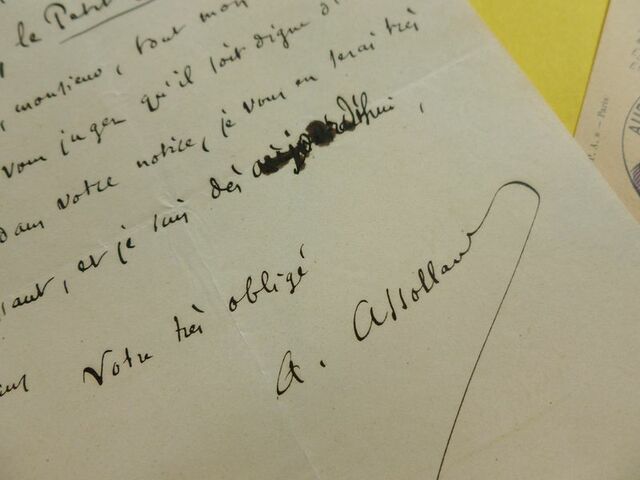 le Petit
monsieur, tout mon
vous jugez qu'il soit digne d
dans votre notice, je vous en serai très
sant, et je suis dès aujourd'hui,
Votre très obligé
A. Assollant
- Paris